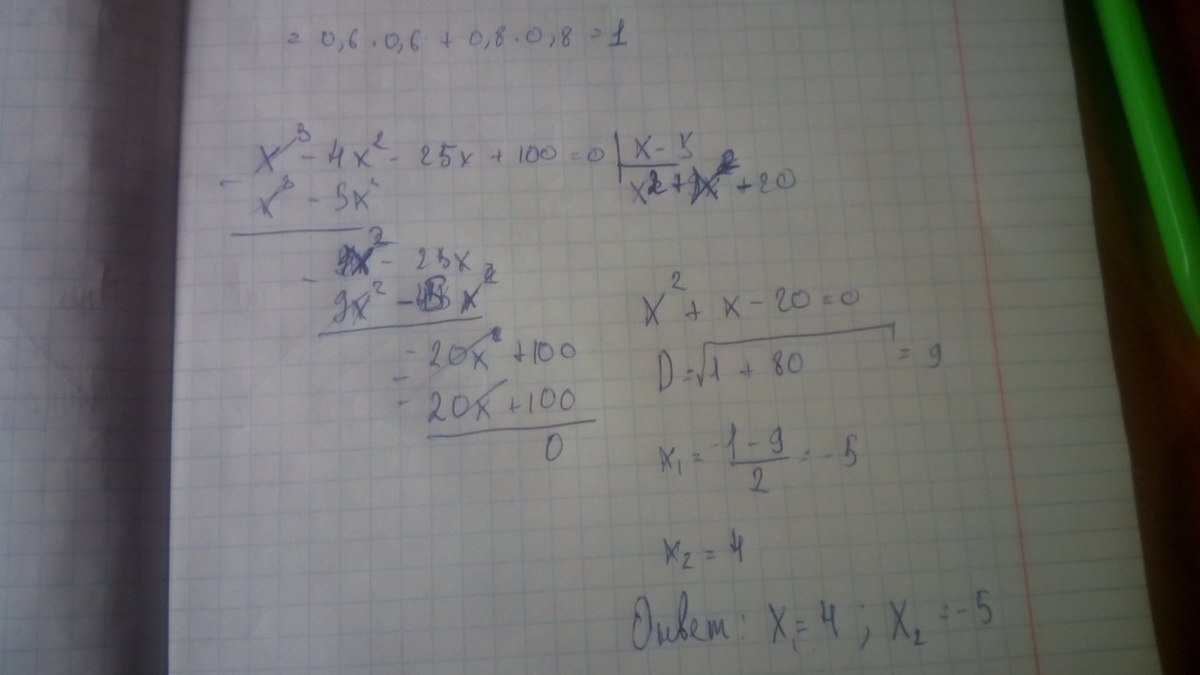 = 0,6 · 0,6 + 0,8 · 0,8 = 1
x³ - 4x² - 25x + 100 = 0 | x - 5
x³ - 5x²
x² + x² + 20
x² - 25x
9x² - x²
- 20x² + 100
- 20x + 100
0
x² + x - 20 = 0
D = √1 + 80 = 9
x₁ = -1 - 9 / 2 = - 5
x₂ = 4
Ответ: x₁ = 4 ; x₂ = -5